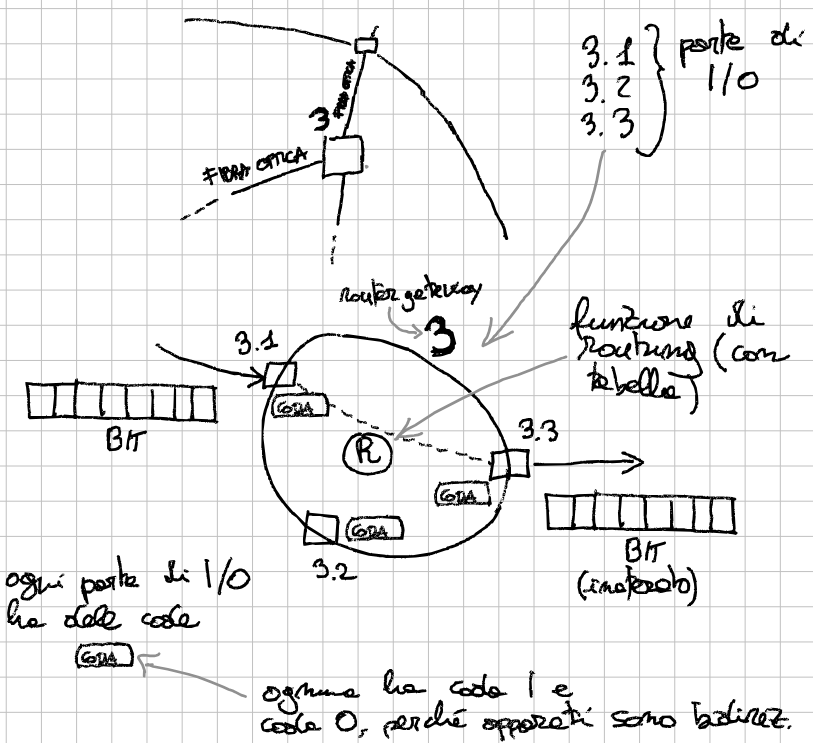 3.1 porte di
3.2 I/O
3.3
FIBRA OTTICA
3
FIBRA OTTICA
router gateway
3
funzione di
routing (con
tabella)
3.1
CODA
BIT
R
3.3
CODA
CODA
3.2
BIT
(inoltrato)
ogni porta di I/O
ha delle code
CODA
ognuna ha coda I e
coda O, perché apparati sono bidirez.